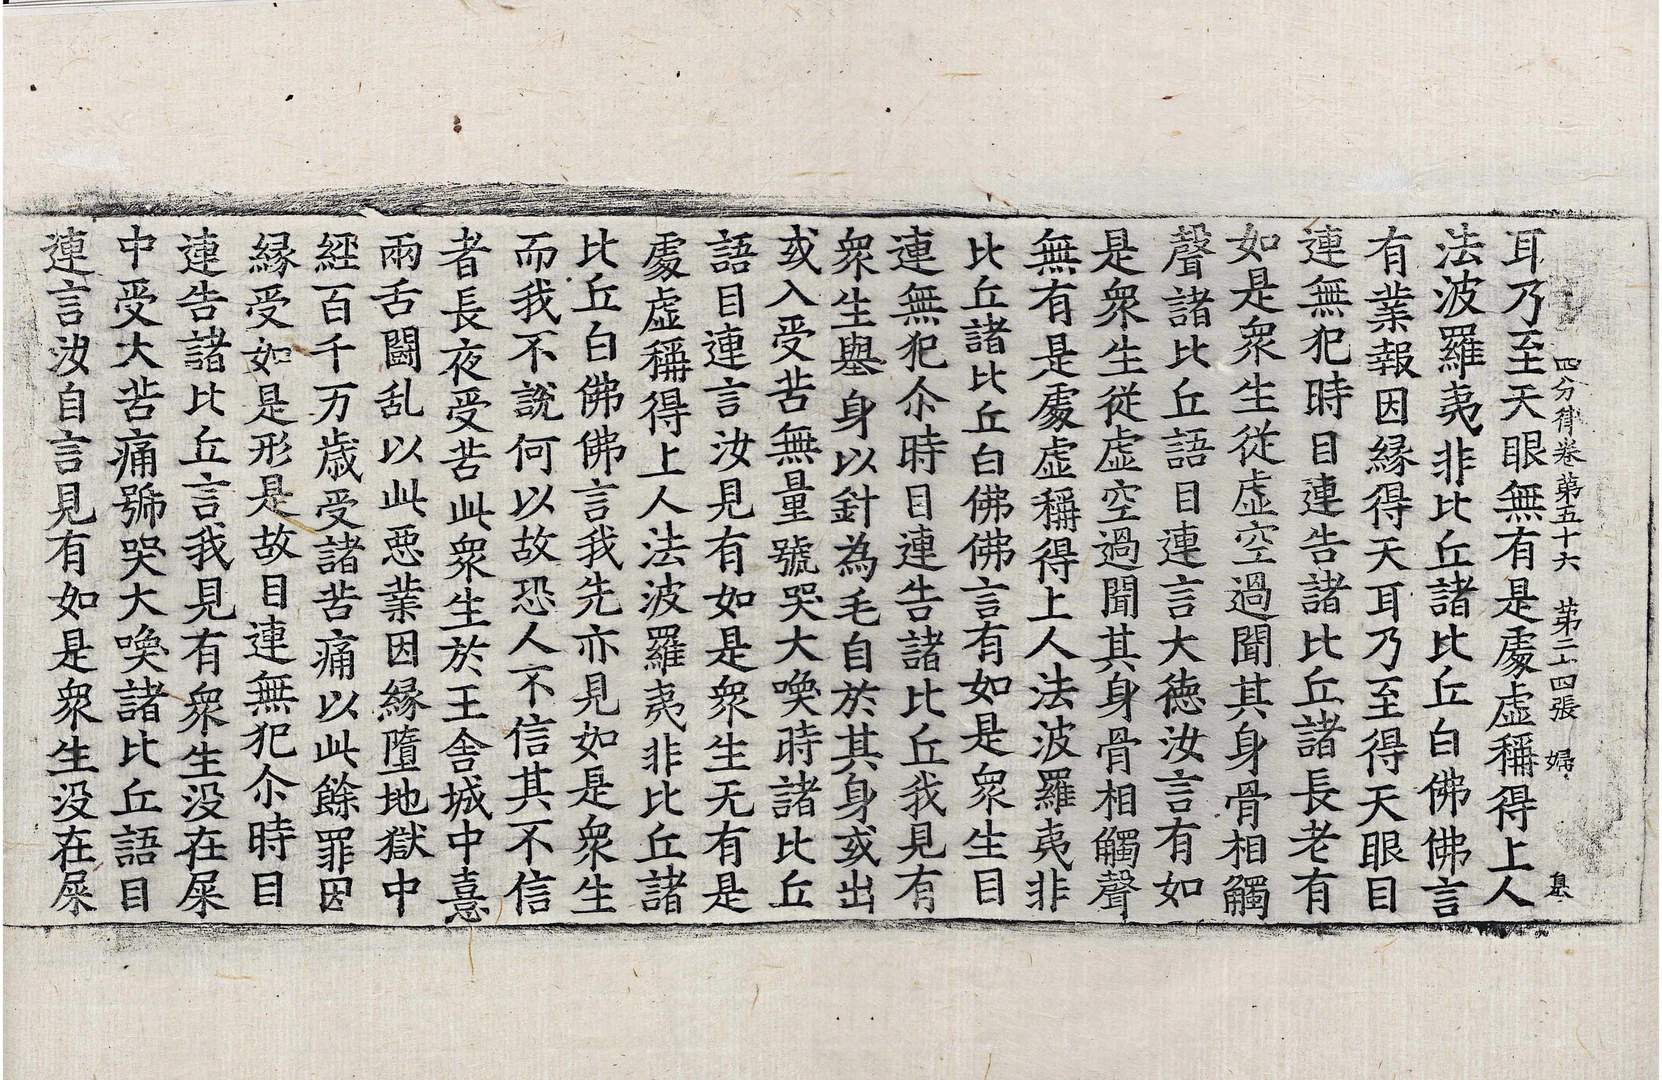 四分律卷第五十六 第二十四張 婦
耳乃至天眼無有是處虛稱得上人
法波羅夷非比丘諸比丘白佛佛言
有業報因縁得天耳乃至得天眼目
連無犯時目連告諸比丘諸長老有
如是衆生從虛空過聞其身骨相觸
聲諸比丘語目連言大德汝言有如
是衆生從虛空過聞其身骨相觸聲
無有是處虛稱得上人法波羅夷非
比丘諸比丘白佛佛言有如是衆生目
連無犯尒時目連告諸比丘我見有
衆生舉身以針為毛自於其身或出
或入受苦無量號哭大喚時諸比丘
語目連言汝見有如是衆生无有是
處虛稱得上人法波羅夷非比丘諸
比丘白佛佛言我先亦見如是衆生
而我不說何以故恐人不信其不信
者長夜受苦此衆生於王舍城中憙
兩舌鬪乱以此惡業因縁墮地獄中
經百千万歲受諸苦痛以此餘罪因
縁受如是形是故目連無犯尒時目
連告諸比丘言我見有衆生没在屎
中受大苦痛號哭大喚諸比丘語目
連言汝自言見有如是衆生没在屎